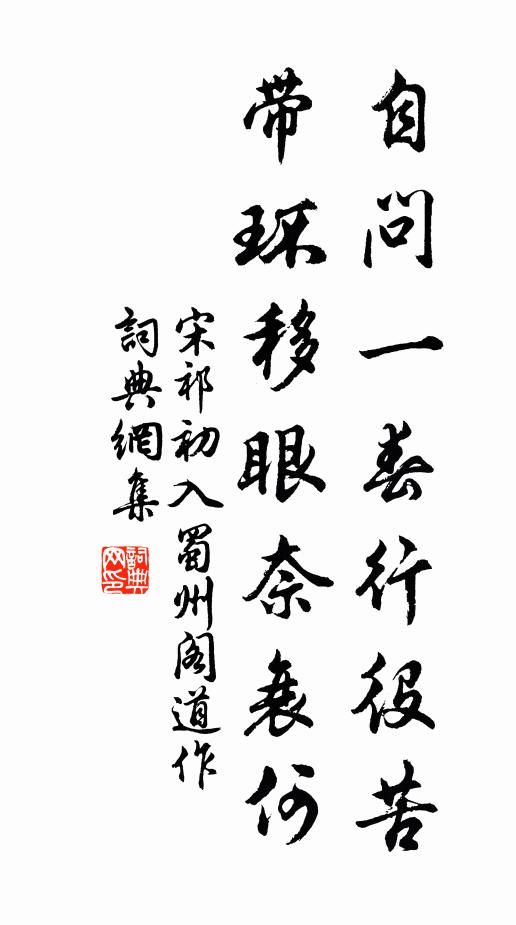 自问一春行役苦
带环移眼奈衰何
宋祁初入蜀州阁道作
詞典網集
詞典网印